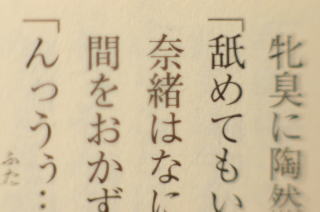 牝臭に陶然
「舐めてもい
奈緒はなに
間をおかず
「んっうぅ…
ふた